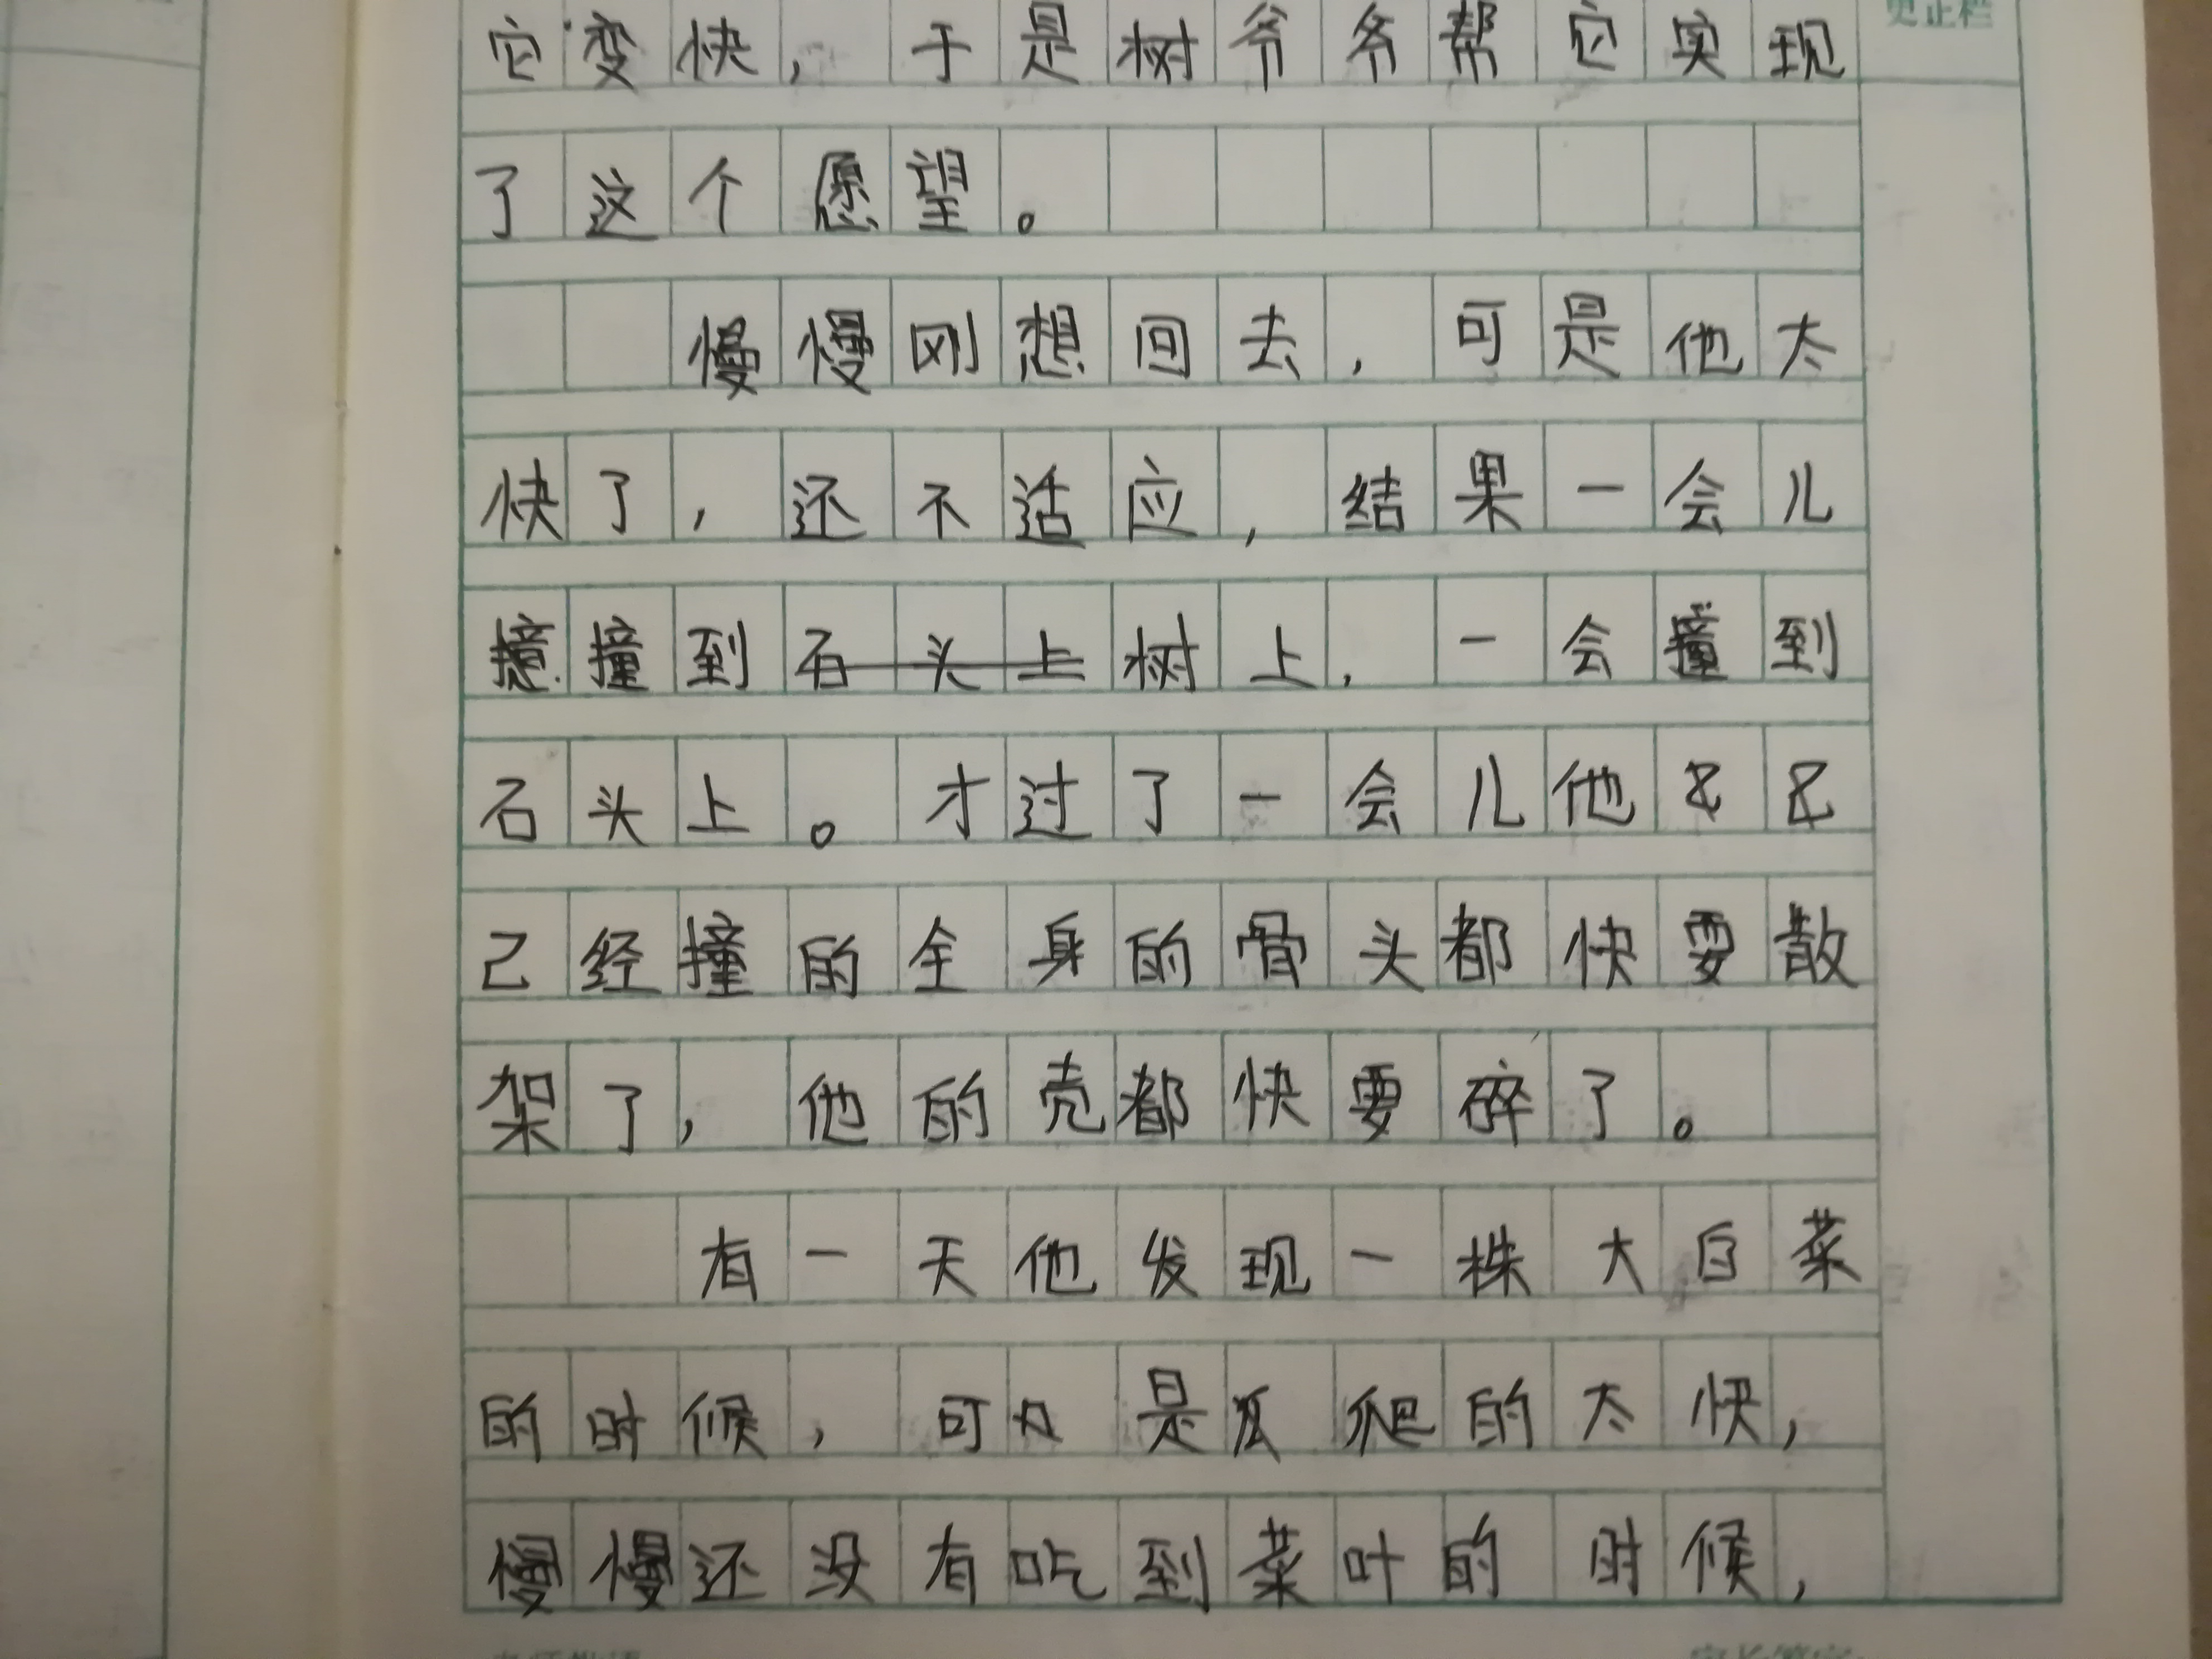 更正栏
它变快，于是树爷爷帮它实现
了这个愿望。
慢慢刚想回去，可是他太
快了，还不适应，结果一会儿
撞到石头上树上，一会撞到
石头上。才过了一会儿他
己经撞的全身的骨头都快要散
架了，他的壳都快要碎了。
有一天他发现一株大白菜
的时候，可是爬的太快，
慢慢还没有吃到菜叶的时候，